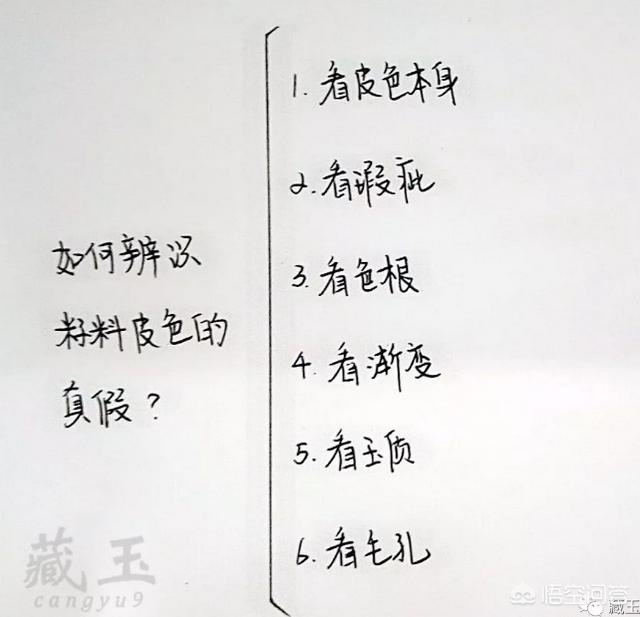 如何辨识
籽料皮色的
真假？
1. 看皮色本身
2. 看瑕疵
3. 看色根
4. 看渐变
5. 看玉质
6. 看毛孔
藏玉
cangyu9
悟空问答
藏玉